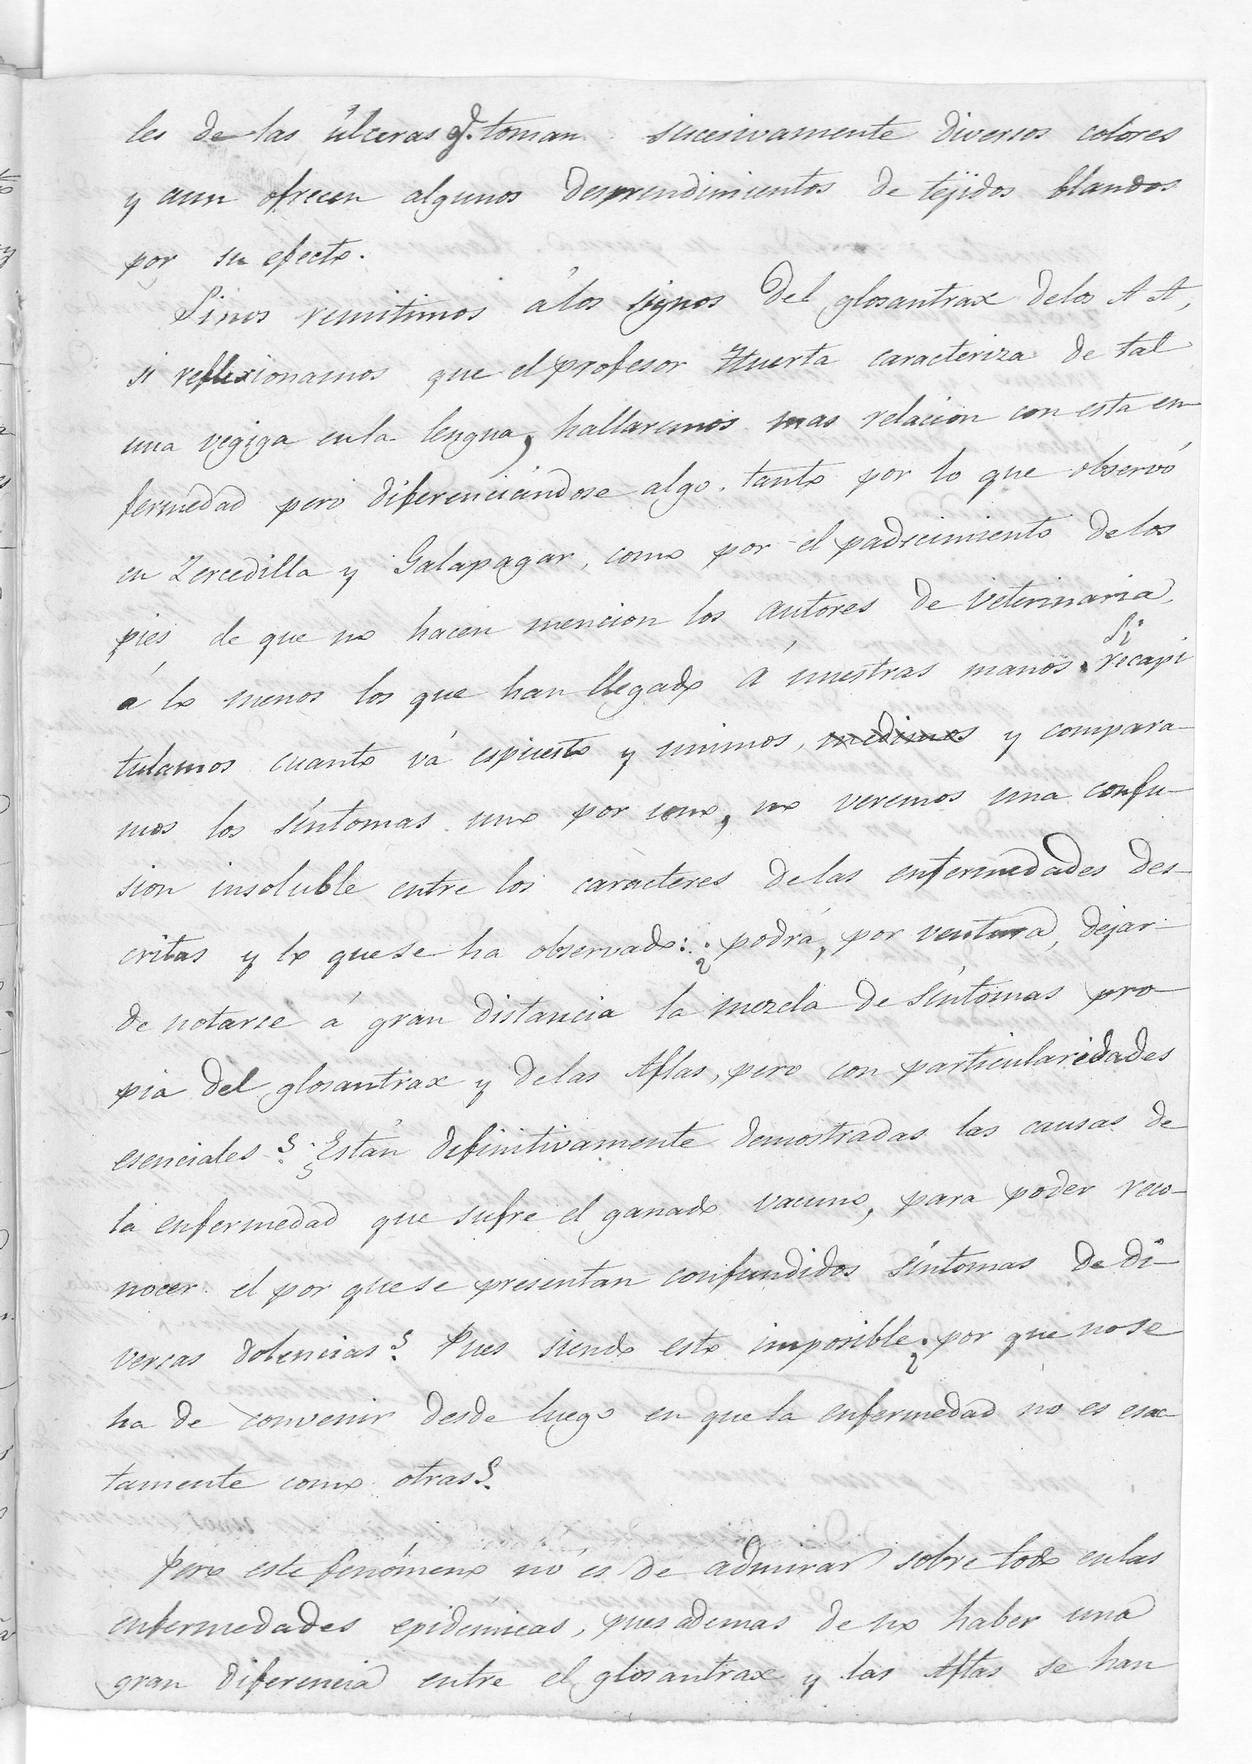 les de las úlceras q. toman sucesivamente diversos colores
y aun ofrecen algunos desprendimientos de tejidos blandos
por su efecto.
Sinos remitimos álos signos del glosantrax delos A A,
si reflexionamos que el profesor Huerta caracteriza de tal
una vegiga enla lengua, hallaremos mas relacion con esta en-
fermedad pero diferenciándose algo, tanto por lo que observó
en Zercedilla y Galapagar, como por el padecimiento delos
pies de que no hacen mencion los autores de veterinaria,
á lo menos los que han llegado á nuestras manos. Si recapi
tulamos cuanto vá espuesto y unimos, medimos y compara-
mos los síntomas uno por uno, no veremos una confu-
sion insoluble entre los caracteres delas enfermedades des-
critas y lo quese ha observado: ¿podrá, por ventura, dejar
de notarse á gran distancia la mezcla de síntomas pro-
pia del glosantrax y delas Aftas, pero con particularidades
esenciales? ¿Están definitivamente demostradas las causas de
la enfermedad que sufre el ganado vacuno, para poder reco-
nocer el por quese presentan confundidos síntomas de di-
versas dolencias? Pues siendo esto imposible ¿por que nose
ha de convenir desde luego en quela enfermedad no es esac-
tamente como otras?
Pero este fenómeno nó es de admirar sobre todo enlas
enfermedades epidémicas, pues ademas de no haber una
gran diferencia entre el glosantrax y las Aftas se han